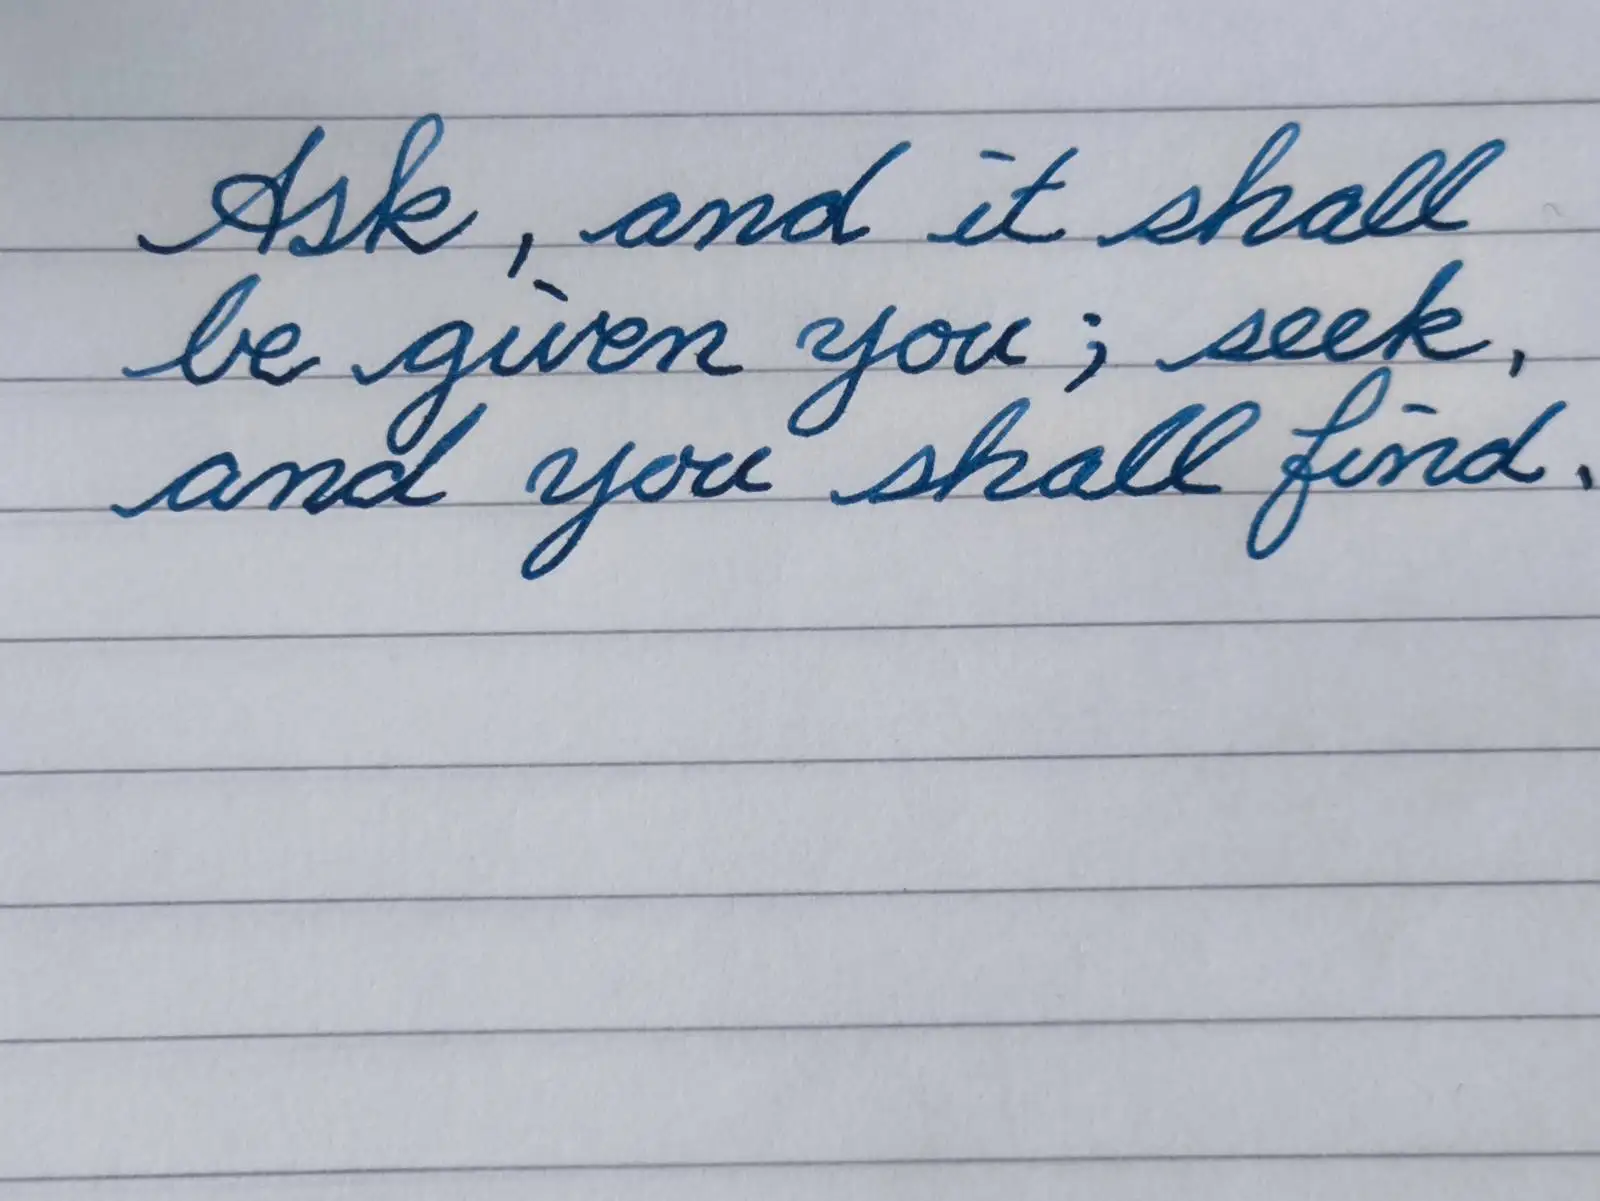 Ask, and it shall
be given you; seek,
and you shall find.